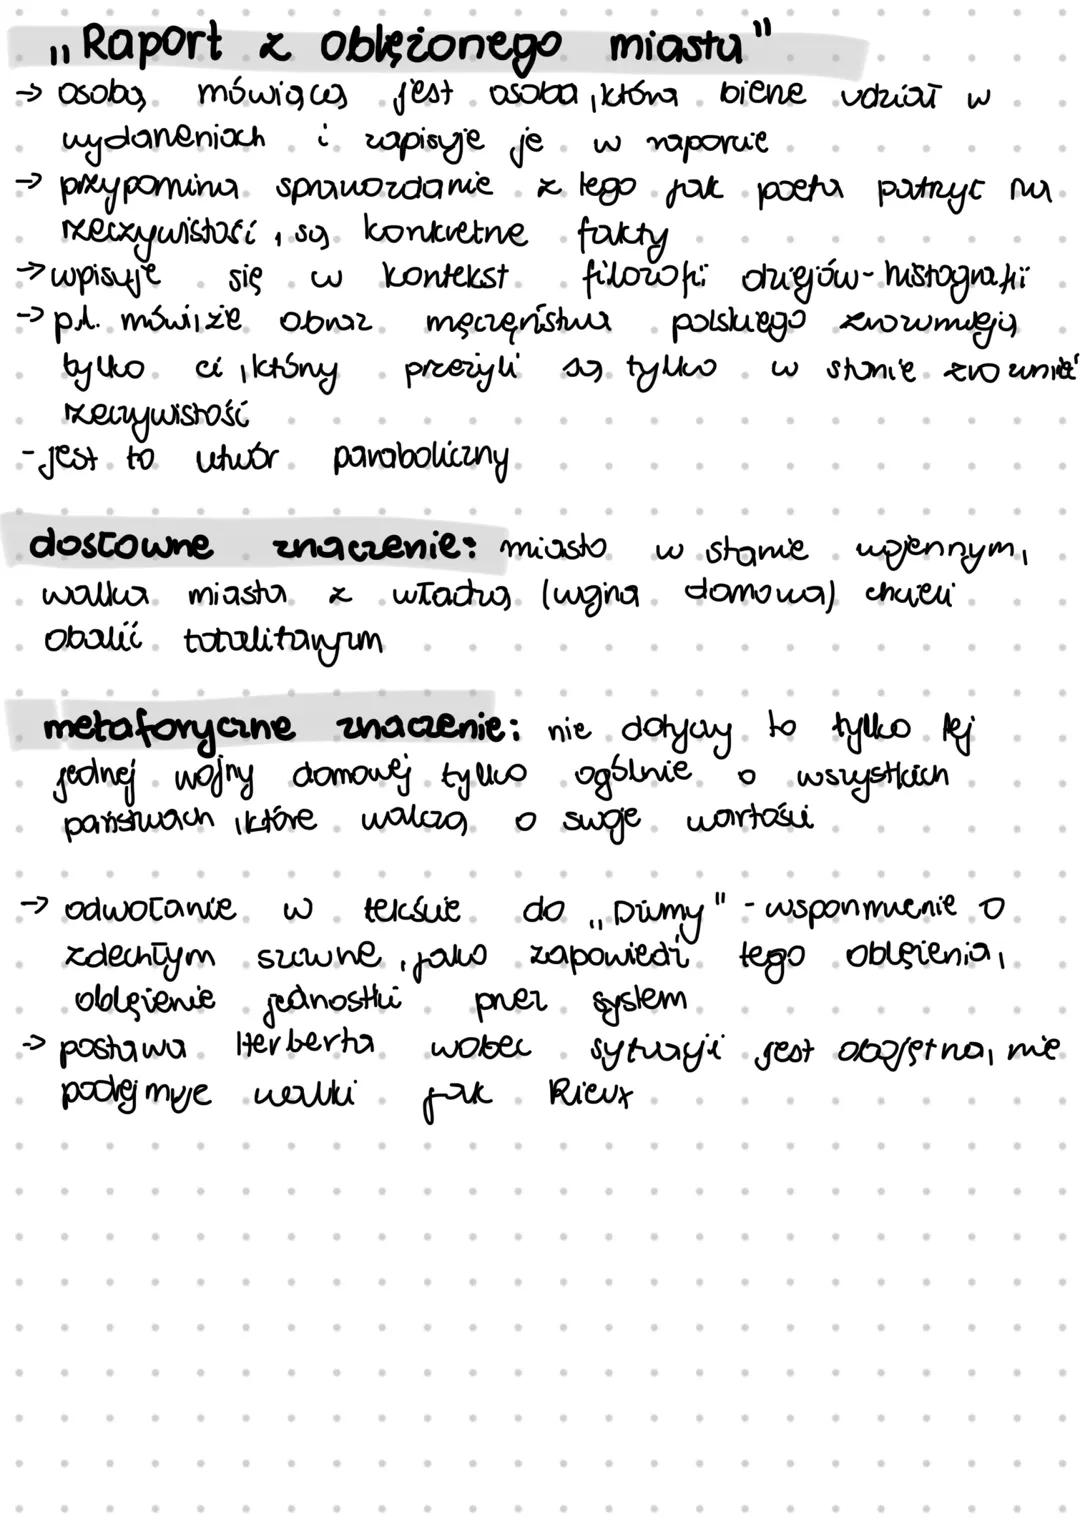 „Raport z oblężonego miasta"
→ osobą mówiącą jest osoba, która bierze udział w
wydarzeniach i zapisuje je w raporcie
→ przypomina sprawozdanie z tego jak poeta patrzył na
rzeczywistość, są konkretne fakty
→ wpisuje się w kontekst filozofii dziejów - histografii
→ p.l. mówi, że obraz męczeństwa polskiego zrozumieją
tylko ci, którzy przeżyli są tylko w stanie zrozumieć
rzeczywistość
- jest to utwór paraboliczny
dosłowne znaczenie: miasto w stanie wojennym,
walka miasta z władzą (wojna domowa) chcieli
obalić totalitaryzm
metaforyczne znaczenie: nie dotyczy to tylko tej
jednej wojny domowej tylko ogólnie o wszystkich
państwach, które walczą o swoje wartości
→ odwołanie w tekście do „Dżumy" - wspomnienie o
zdechłym szczurze, jako zapowiedź tego oblężenia,
oblężenie jednostki przez system
→ postawa Herberta wobec sytuacji jest obojętna, nie
podejmuje walki jak Rieux